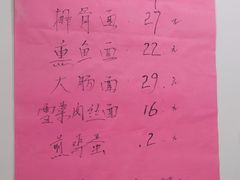 排骨面 27元
熏鱼面 22元
大肠面 29.元
雪菜肉丝面 16元
煎鸡蛋 .2元